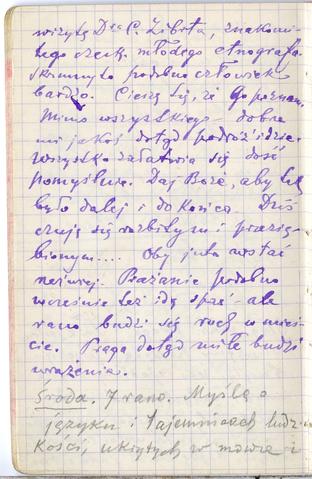 wizytę Dra C. Zibrta, znakomi-
tego czesk. młodego etnografa.
Skromny to podobno człowiek
bardzo. Cieszę się, że Go poznam.
Mimo wszystkiego – dobrze
mi jakoś dotąd podróż idzie.
Wszystko załatwia się dość
pomyślnie. Daj Boże, aby tak
było dalej i do końca. Dziś
czuję się rozbitym i przezię-
bionym.... Oby jutro wstać
raźniej. Prażanie podobno
wcześnie też idą spać – ale
rano budzi się ruch w mieś-
cie. Praga dotąd miłe budzi
wrażenie.
Środa. 7 rano. Myślę o
języku i tajemnicach ludz-
kości, ukrytych w mowie i